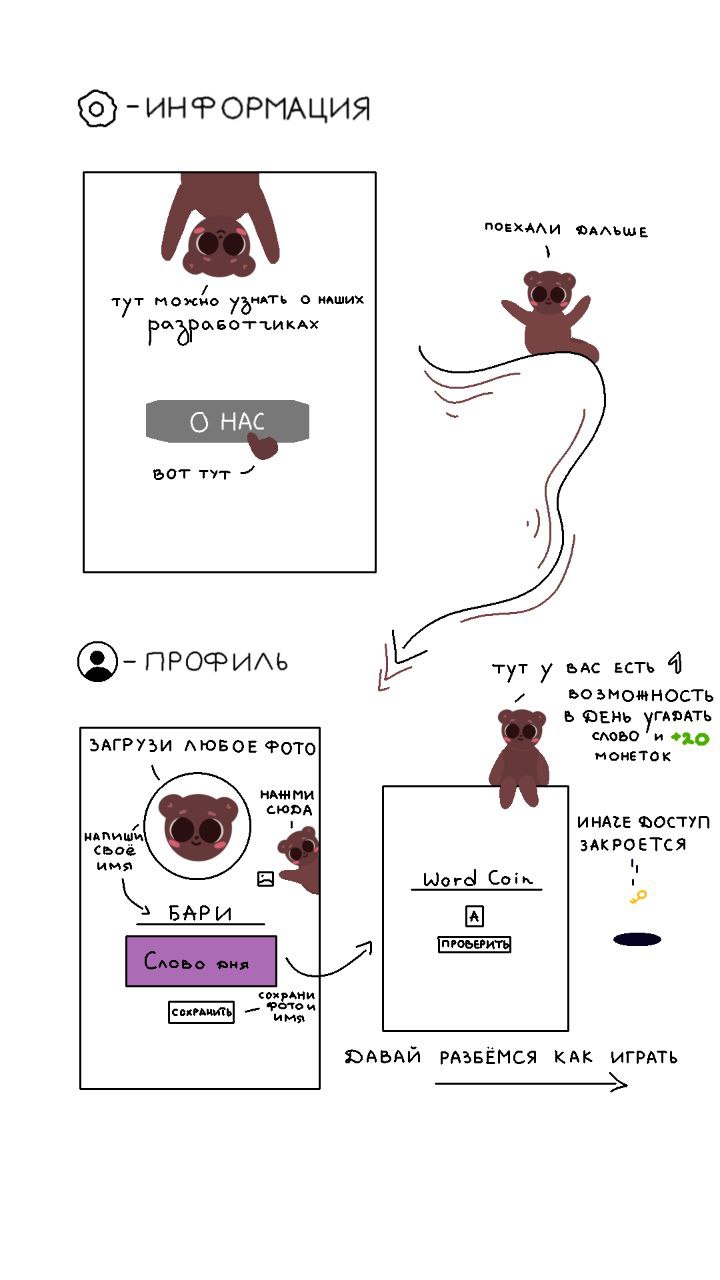 - ИНФОРМАЦИЯ
ТУТ МОЖНО УЗНАТЬ О НАШИХ
РАЗРАБОТЧИКАХ
О НАС
ВОТ ТУТ
ПОЕХАЛИ ДАЛЬШЕ
- ПРОФИЛЬ
ЗАГРУЗИ ЛЮБОЕ ФОТО
НАЖМИ
СЮДА
НАПИШИ
СВОЁ
ИМЯ
БАРИ
Слово дня
СОХРАНИТЬ
СОХРАНИ
ФОТО И
ИМЯ
ТУТ У ВАС ЕСТЬ 1
ВОЗМОЖНОСТЬ
В ДЕНЬ УГАДАТЬ
СЛОВО И +20
МОНЕТОК
Word Coin
А
ПРОВЕРИТЬ
ИНАЧЕ ДОСТУП
ЗАКРОЕТСЯ
ДАВАЙ РАЗБЁМСЯ КАК ИГРАТЬ